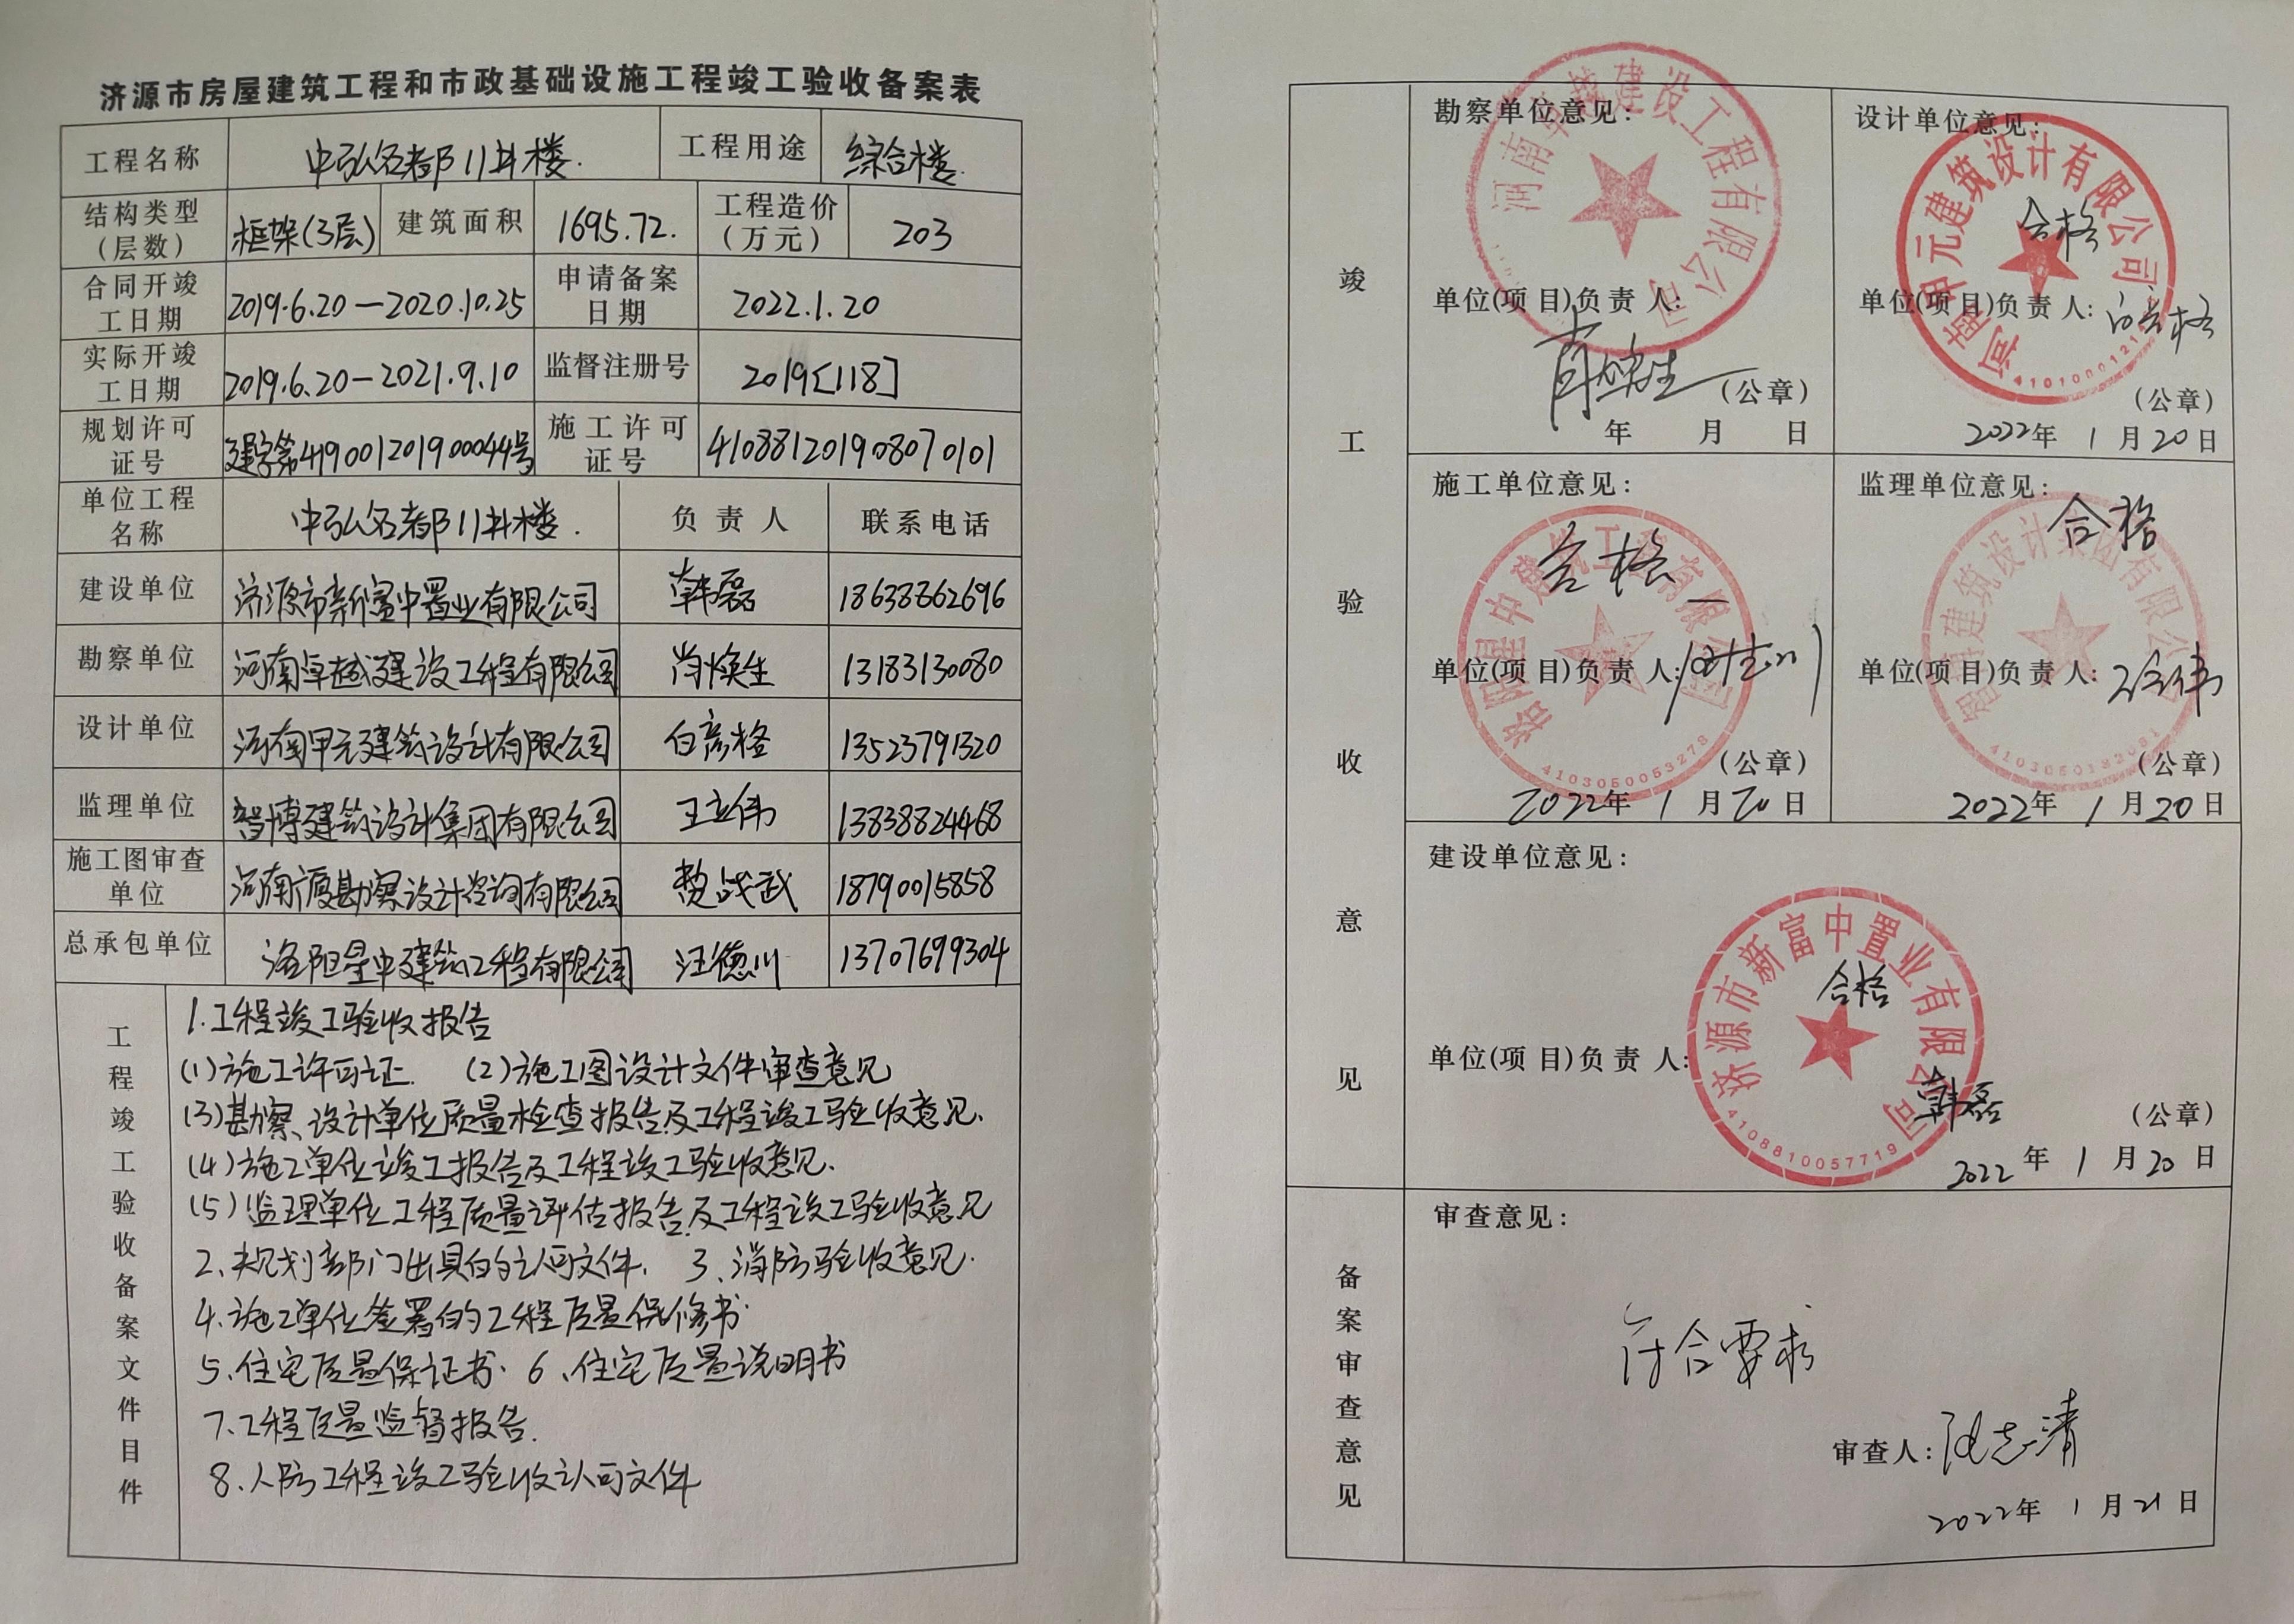 济源市房屋建筑工程和市政基础设施工程竣工验收备案表
工程名称 中弘名都11#楼. 工程用途 综合楼.
结构类型（层数） 框架(3层) 建筑面积 1695.72. 工程造价（万元） 203
合同开竣工日期 2019.6.20—2020.10.25 申请备案日期 2022.1.20
实际开竣工日期 2019.6.20—2021.9.10 监督注册号 2019[118]
规划许可证号 建字第419001201900044号 施工许可证号 410881201908070101
单位工程名称 中弘名都11#楼. 负责人 联系电话
建设单位 济源市新富中置业有限公司 韩磊 18638862696
勘察单位 河南卓越建设工程有限公司 肖焕生 13183130080
设计单位 河南甲元建筑设计有限公司 白彦格 13523791320
监理单位 智博建筑设计集团有限公司 王立伟 13838824468
施工图审查单位 河南广厦勘察设计咨询有限公司 战武 18790015858
总承包单位 洛阳星中建筑工程有限公司 汪德川 13707699304
工程竣工验收备案文件目件
1.工程竣工验收报告
(1)施工许可证. (2)施工图设计文件审查意见
(3)勘察、设计单位质量检查报告及工程竣工验收意见.
(4)施工单位竣工报告及工程竣工验收意见.
(5)监理单位工程质量评估报告及工程竣工验收意见
2、规划部门出具的认可文件. 3、消防验收意见.
4.施工单位签署的工程质量保修书.
5、住宅质量保证书. 6、住宅质量说明书
7.工程质量监督报告.
8.人防工程竣工验收认可文件
竣工验收意见
勘察单位意见:
河南卓越建设工程有限公司
单位(项目)负责人:
肖焕生
(公章)
年 月 日
设计单位意见:
河南甲元建筑设计有限公司
合格
单位(项目)负责人: 白彦格
(公章)
2022年 1月20日
施工单位意见:
合格
洛阳星中建筑工程有限公司
单位(项目)负责人: 汪德川
4103050053278
(公章)
2022年 1月20日
监理单位意见:
合格
智博建筑设计集团有限公司
单位(项目)负责人: 王立伟
(公章)
2022年 1月20日
建设单位意见:
济源市新富中置业有限公司
合格
单位(项目)负责人:
韩磊
4108810057719
(公章)
2022年 1月20日
备案审查意见
审查意见:
符合要求
审查人:
2022年 1月21日